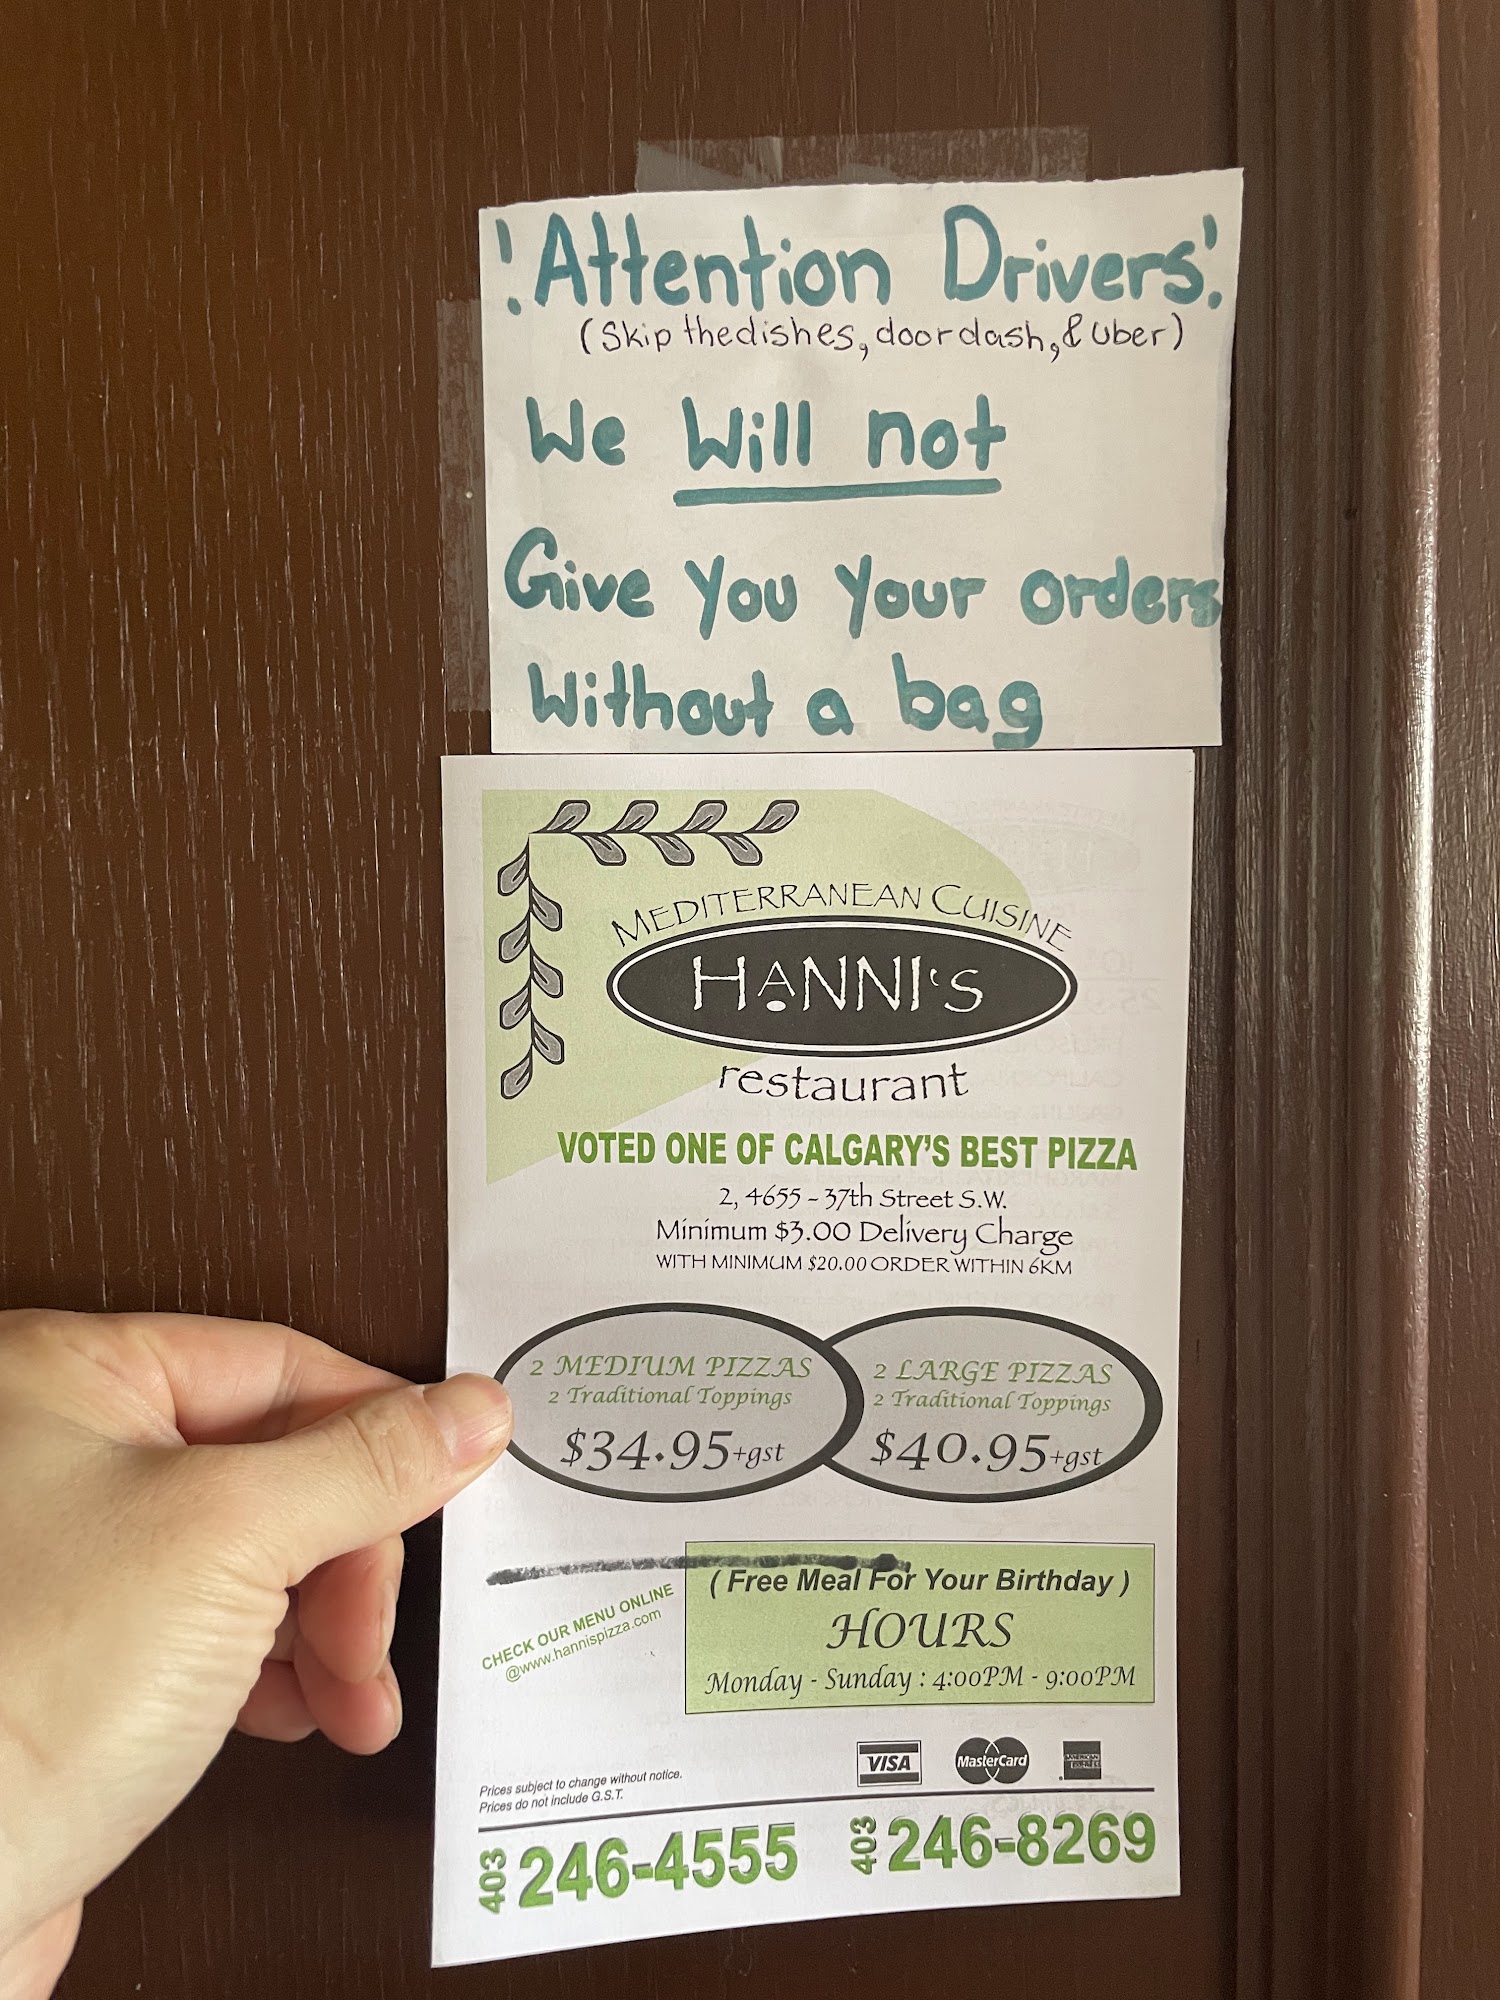 ! Attention Drivers!
(Skip thedishes, doordash, & Uber)
We Will not
Give You Your orders
Without a bag
MEDITERRANEAN CUISINE
HANNI'S
restaurant
VOTED ONE OF CALGARY'S BEST PIZZA
2, 4655 - 37th Street S.W.
Minimum $3.00 Delivery Charge
WITH MINIMUM $20.00 ORDER WITHIN 6KM
2 MEDIUM PIZZAS
2 Traditional Toppings
$34.95+gst
2 LARGE PIZZAS
2 Traditional Toppings
$40.95+gst
(Free Meal For Your Birthday)
HOURS
Monday - Sunday : 4:00PM - 9:00PM
CHECK OUR MENU ONLINE
@www.hannispizza.com
VISA
MasterCard
AMERICAN EXPRESS
Prices subject to change without notice.
Prices do not include G.S.T.
403 246-4555
403 246-8269